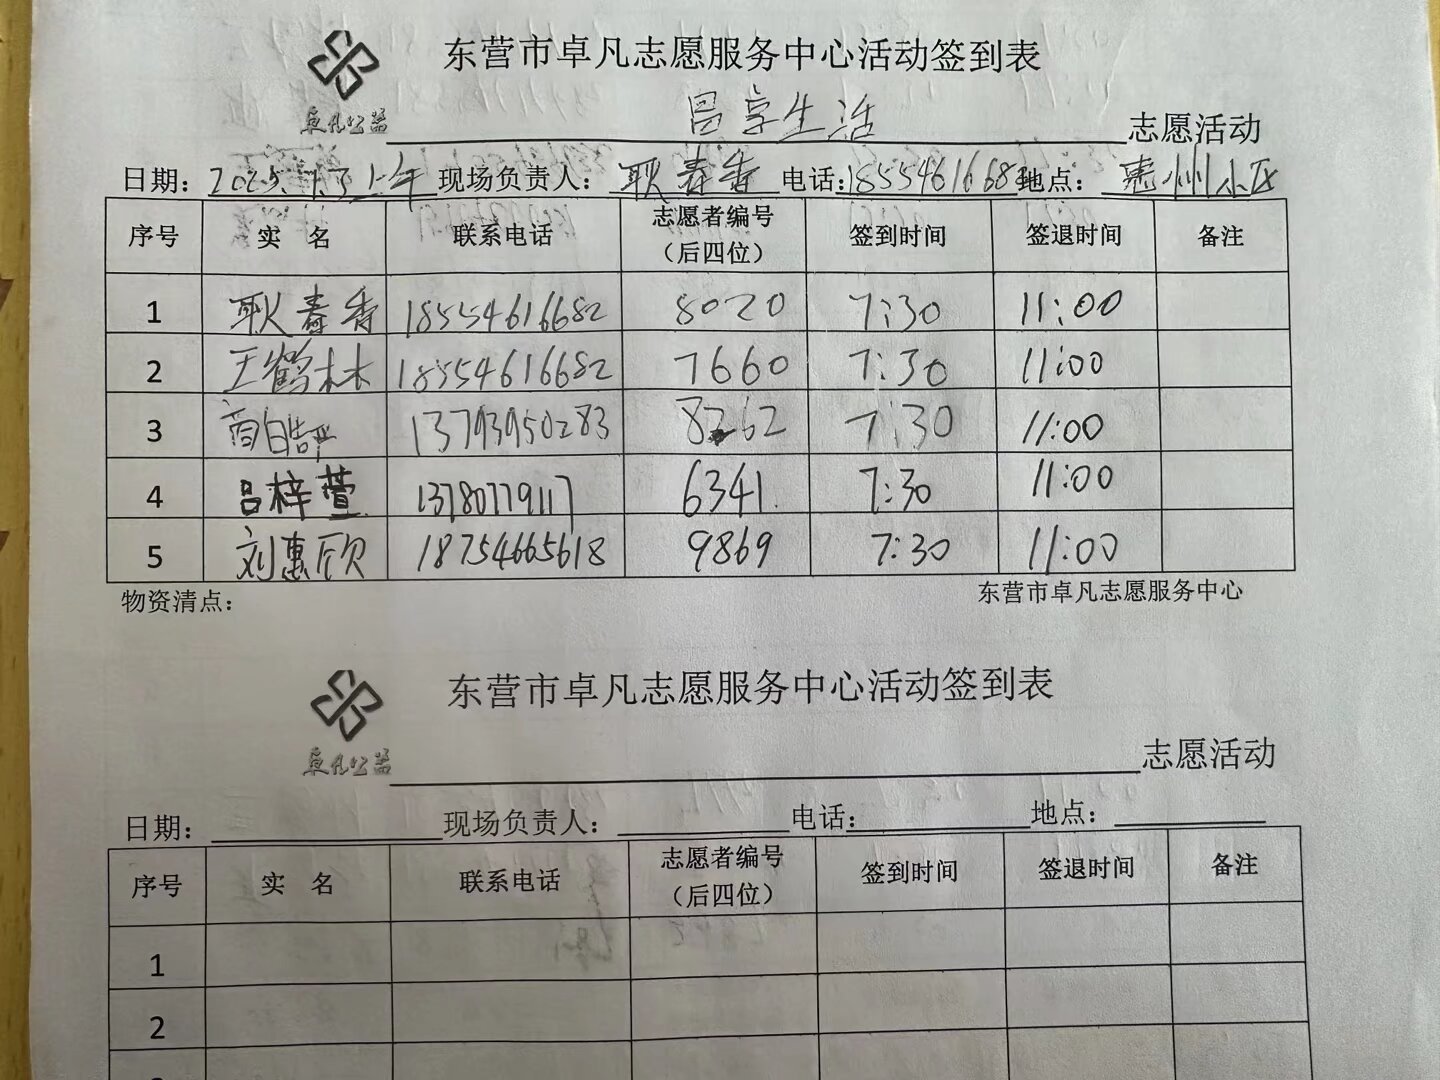 东营市卓凡志愿服务中心活动签到表
卓凡公益
昌享生活 志愿活动
日期： 2025. 1.3 上午 现场负责人： 耿春香 电话：18554616682 地点： 惠州小区
序号 实 名 联系电话 志愿者编号（后四位） 签到时间 签退时间 备注
1 耿春香 18554616682 8020 7:30 11:00
2 王鹤林 18554616682 7660 7:30 11:00
3 13793950283 8262 7:30 11:00
4 吕梓萱 13780779117 6341 7:30 11:00
5 刘惠欣 18754665618 9869 7:30 11:00
物资清点： 东营市卓凡志愿服务中心
东营市卓凡志愿服务中心活动签到表
卓凡公益
志愿活动
日期： 现场负责人： 电话： 地点：
序号 实 名 联系电话 志愿者编号（后四位） 签到时间 签退时间 备注
1
2